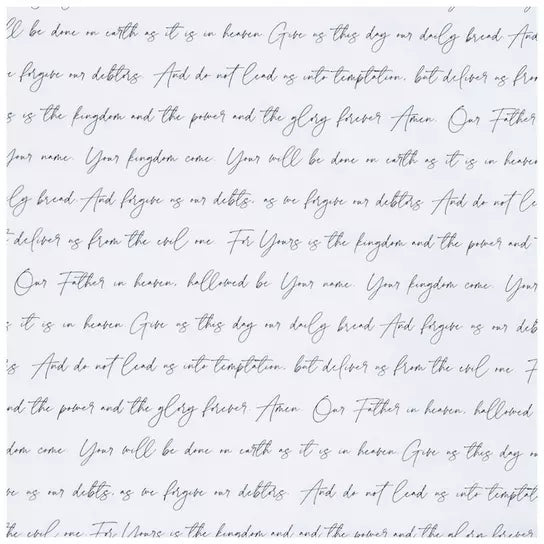 ll be done on earth as it is in heaven Give us this day our daily bread And
e forgive our debtors. And do not lead us into temptation, but deliver us fro
s is the kingdom and the power and the glory forever Amen. Our Father
Your name. Your kingdom come. Your will be done on earth as it is in heaven
ly bread And forgive us our debts, as we forgive our debtors And do not le
deliver us from the evil one. For Yours is the kingdom and the power and
Our Father in heaven, hallowed be Your name. Your kingdom come. Your
s it is in heaven Give us this day our daily bread And forgive us our deb
s. And do not lead us into temptation, but deliver us from the evil one. F
nd the power and the glory forever. Amen. Our Father in heaven, hallowed
dom come. Your will be done on earth as it is in heaven Give us this day o
ve us our debts, as we forgive our debtors. And do not lead us into temptat
the evil one. For Yours is the kingdom and the power and the glory forever